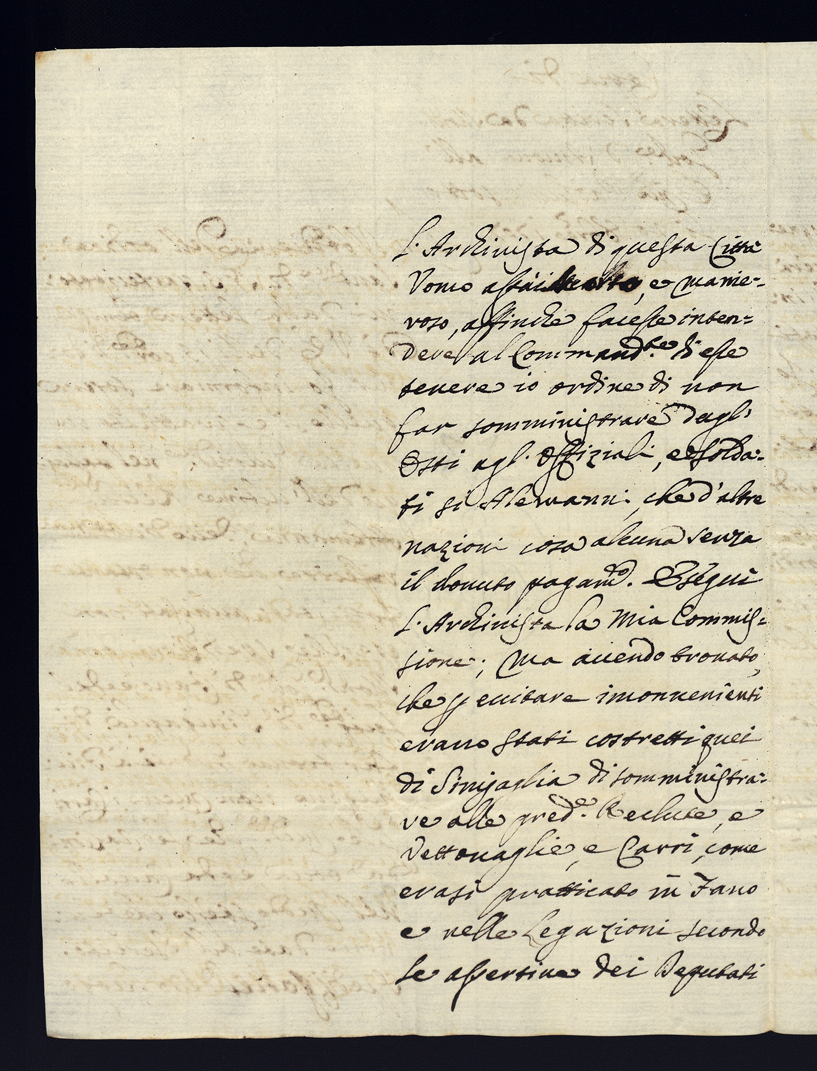 l'Archivista di questa Città
Uomo assai, e manie-
roso, affinche facesse inten-
dere al Command.te di esse
tenere io ordine di non
far somministrare dagl'
Osti agl' Offiziali, e Solda-
ti si Alemanni, che d'altre
nazioni cosa alcuna senza
il dovuto pagam.to. Eseguì
l'Archivista la Mia Commis-
sione; Ma avendo trovato,
che p evitare inconvenienti
erano stati costretti quei
di Sinigaglia di somministra-
re alle pred.e Reclute, e
Vettovaglie, e Carri, come
erasi pratticato in Fano
e nelle Legazioni secondo
le assertive dei Deputati